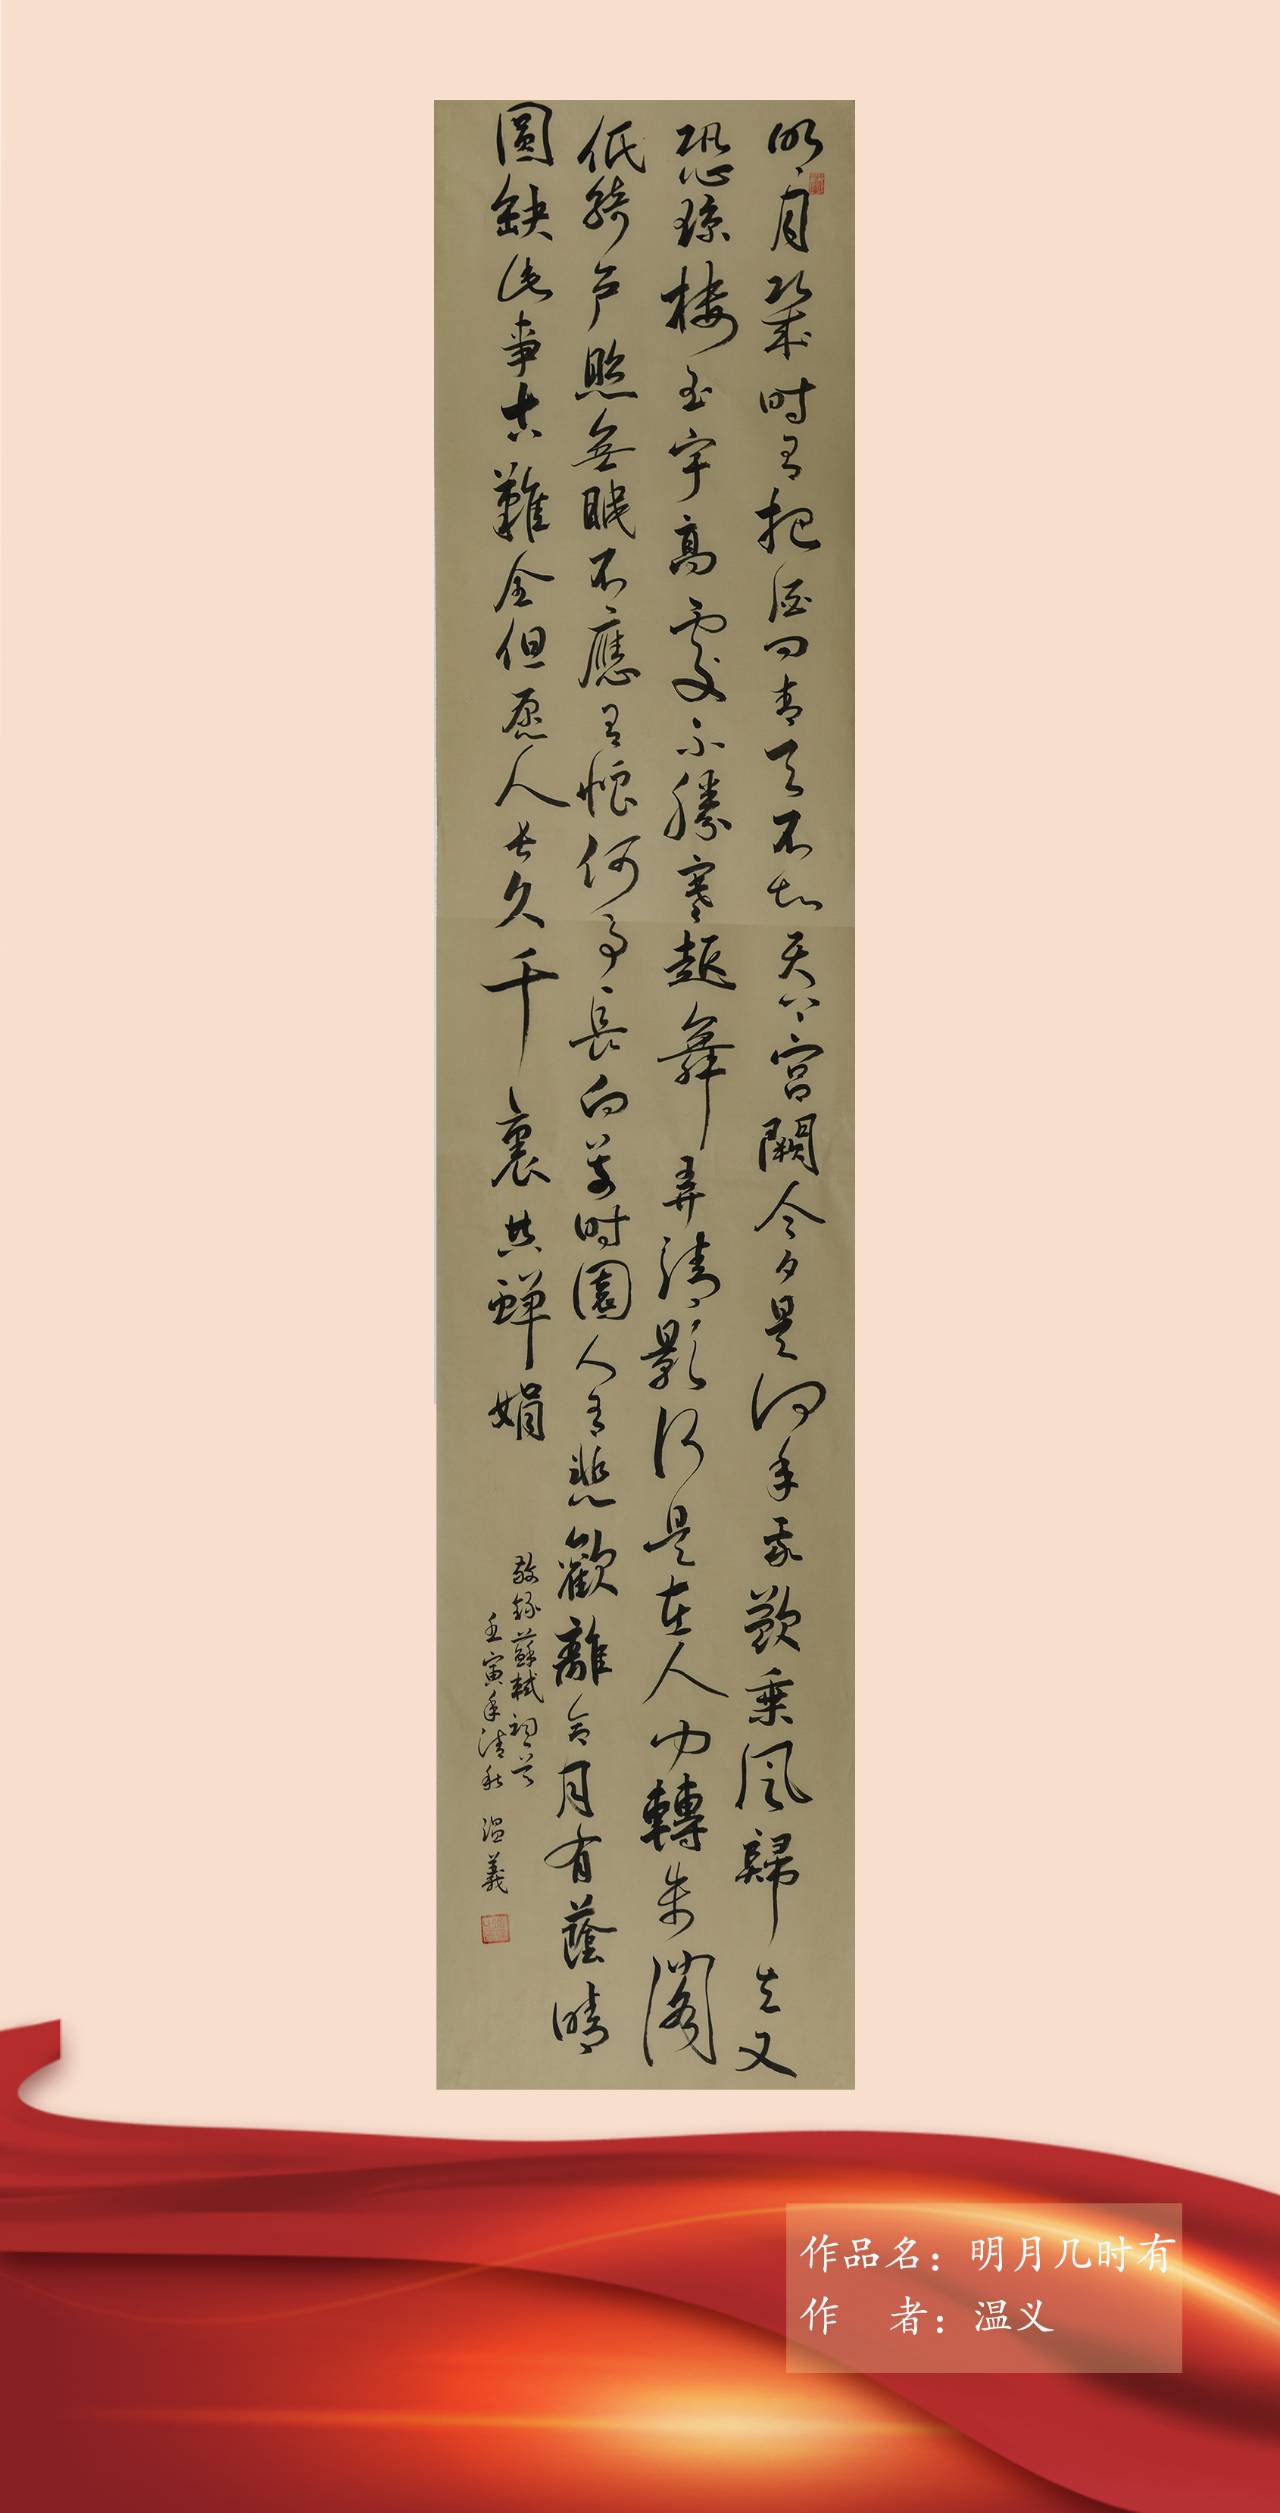 明月幾时有把酒问青天不知天上宫闕今夕是何年我欲乘风歸去又
恐琼楼玉宇高處不勝寒起舞弄清影何是在人间轉朱阁
低綺户照無眠不應有恨何事長向别时圓人有悲歡離合月有蔭晴
圓缺此事古難全但愿人长久千裏共蟬娟
敬録蘇軾词首
壬寅年清秋 温義
作品名：明月几时有
作　者：温义